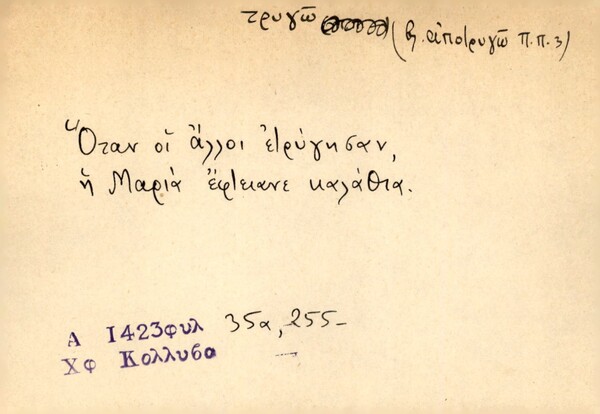 τρυγῶ (βλ. ἀποτρυγῶ Π.Π. 3)
Ὅταν οἵ ἄλλοι ἐτρύγησαν,
ἥ Μαριὰ ἔφτειανε καλάθια.
Α 1423φυλ 35α, 255-
Χφ Κολλυβα